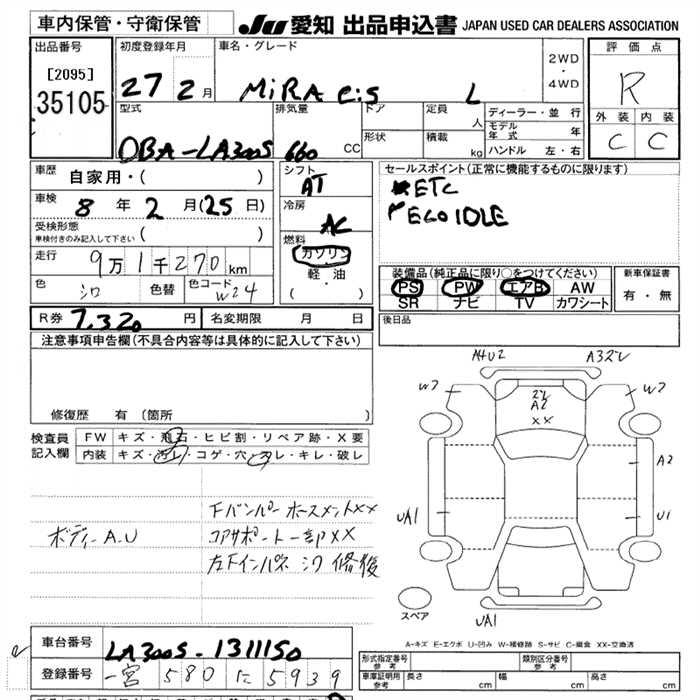 車内保管・守衛保管
JU 愛知 出品申込書 JAPAN USED CAR DEALERS ASSOCIATION
出品番号
[2095]
35105
初度登録年月
27 2月
車名・グレード
MiRA e:s L
2WD
・
4WD
評価点
R
外装 内装
C C
型式
DBA-LA300S
排気量
660 CC
ドア
形状
定員
人
積載
kg
ディーラー・並行
モデル年式 年
ハンドル 左・右
車歴
自家用・( )
車検
8年 2月(25日)
受検形態
車検付きのみ記入して下さい ( )
走行
9万1千270km
色
シロ
色替
色コード
W24
シフト
AT
冷房
AC
燃料
ガソリン
軽・油
( )
セールスポイント(正常に機能するものに限ります)
ETC
ECO IDLE
装備品(純正品に限り○をつけてください)
PS PW エアB AW
SR ナビ TV カワシート
新車保証書
有・無
R券 7,320円
名変期限 月 日
後日品
注意事項申告欄(不具合内容等は具体的に記入して下さい)
修復歴 有(箇所 )
検査員
記入欄
FW キズ・飛石・ヒビ割・リペア跡・X要
内装 キズ・汚レ・コゲ・穴・スレ・キレ・破レ
下バンパーホースメントXX
ボディーA.U
コアサポート一部XX
左下インパネ シワ 修復
A4U2
W7
2
A2
XX
W7
A2
U1
UA1
UA1
スペア
A-キズ E-エクボ U-凹み W-補修跡 S-サビ C-腐食 XX-交換済
車台番号
LA300S-1311150
登録番号
一宮 580 に 5939
形式指定番号
参考
類別区分番号
参考
車庫証明用
参考
長さ cm
幅 cm
高さ cm